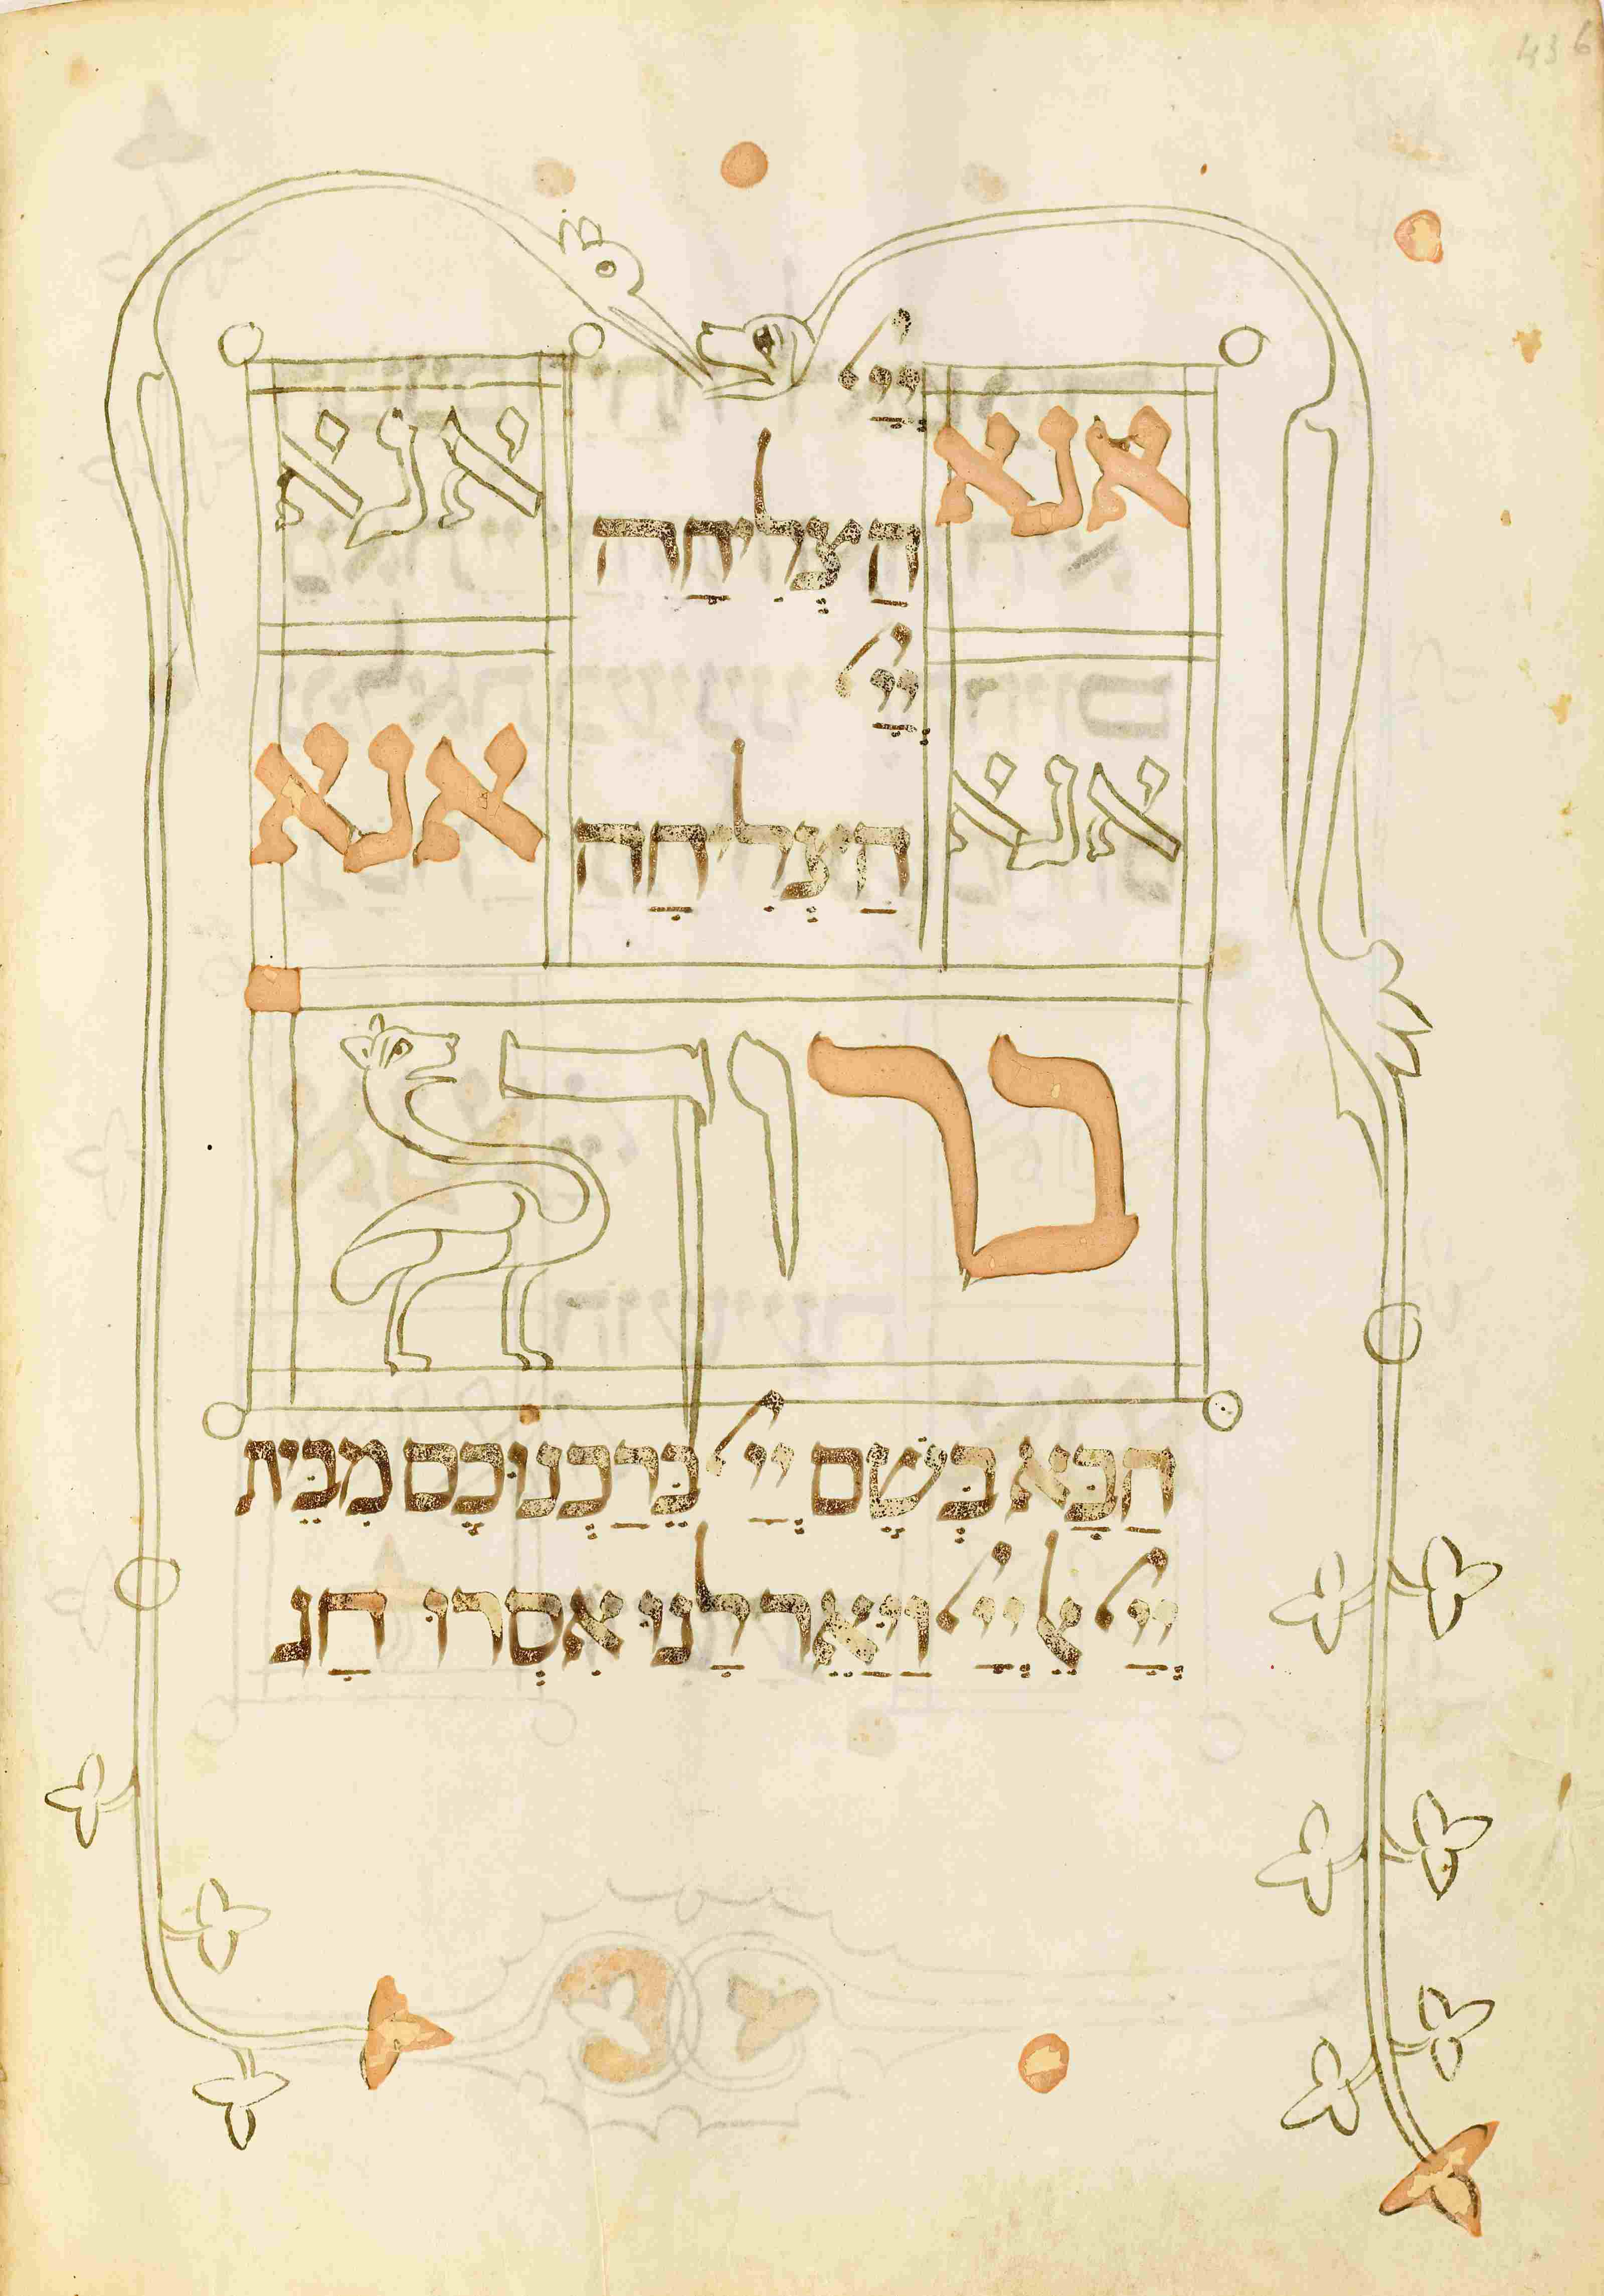 43 6
אָנָּא יְיָ אָנָּא
הַצְלִיחָה
אָנָּא יְיָ אָנָּא
הַצְלִיחָה
ברוך
הַבָּא בְּשֵׁם יְיָ בֵּרַכְנוּכֶם מִבֵּית
יְיָ אֵל יְיָ וַיָּאֵר לָנוּ אִסְרוּ חַג